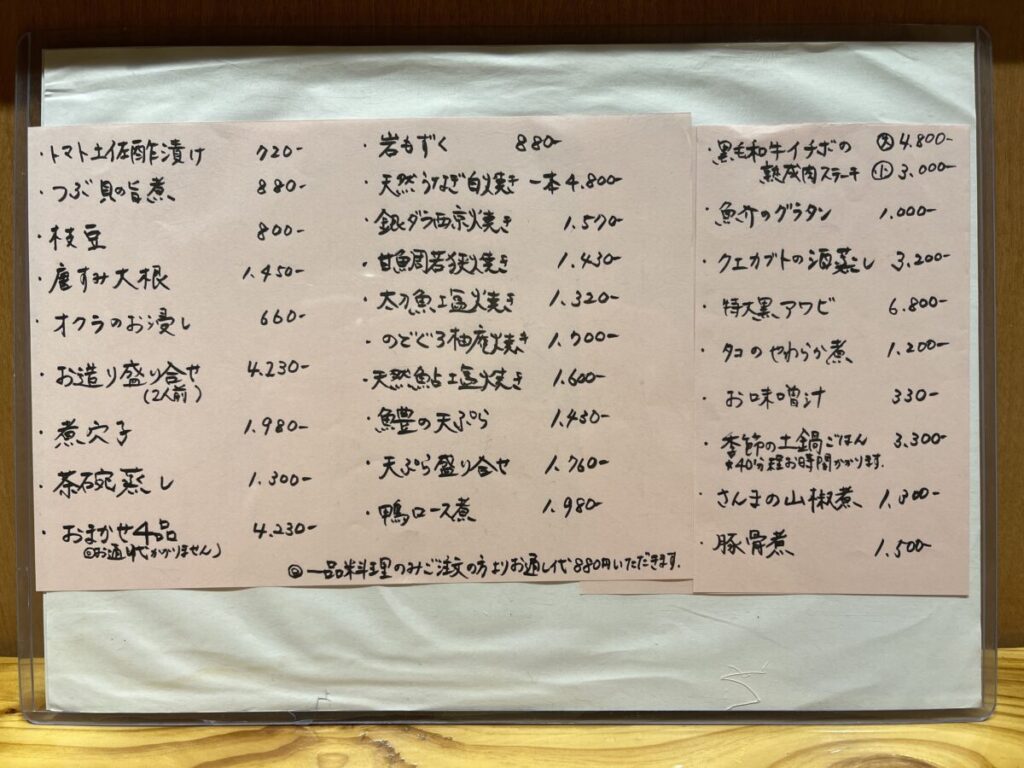 ・トマト土佐酢漬け 720-
・つぶ貝の旨煮 880-
・枝豆 800-
・唐すみ大根 1.450-
・オクラのお浸し 660-
・お造り盛り合せ 4.230-
(2人前)
・煮穴子 1.980-
・茶碗蒸し 1.300-
・おまかせ4品 4.230-
(◎お通し代かかりません)
・岩もずく 880-
・天然うなぎ白焼き 一本4.800-
・銀ダラ西京焼き 1.570-
・甘鯛若狭焼き 1.430-
・太刀魚塩焼き 1.320-
・のどぐろ柚庵焼き 1.700-
・天然鮎塩焼き 1.600-
・鱧の天ぷら 1.430-
・天ぷら盛り合せ 1.760-
・鴨ロース煮 1.980-
◎一品料理のみご注文の方よりお通し代880円いただきます.
・黒毛和牛イチボの 大 4.800-
熟成肉ステーキ 小 3.000-
・魚介のグラタン 1.000-
・クエカブトの酒蒸し 3.200-
・特大黒アワビ 6.800-
・タコのやわらか煮 1.200-
・お味噌汁 330-
・季節の土鍋ごはん 3.300-
*40分程お時間かかります.
・さんまの山椒煮
・豚骨煮 1.500-